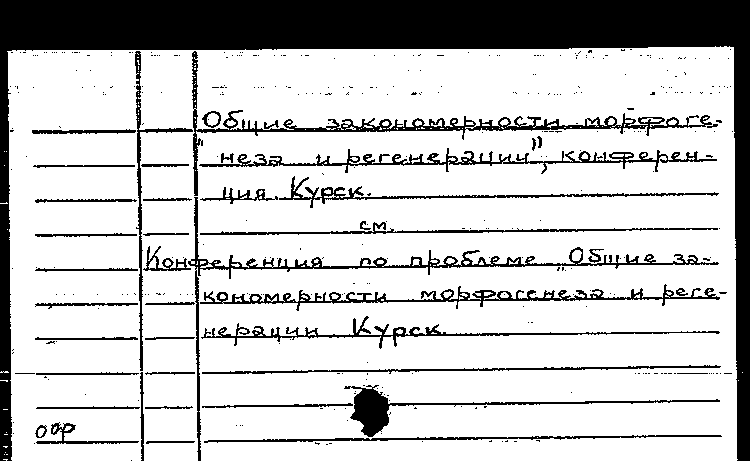 Общие закономерности морфоге-
„ неза и регенерации", конферен-
ция. Курск.
см.
Конференция по проблеме „Общие за-
кономерности морфогенеза и реге-
нерации Курск.
обр